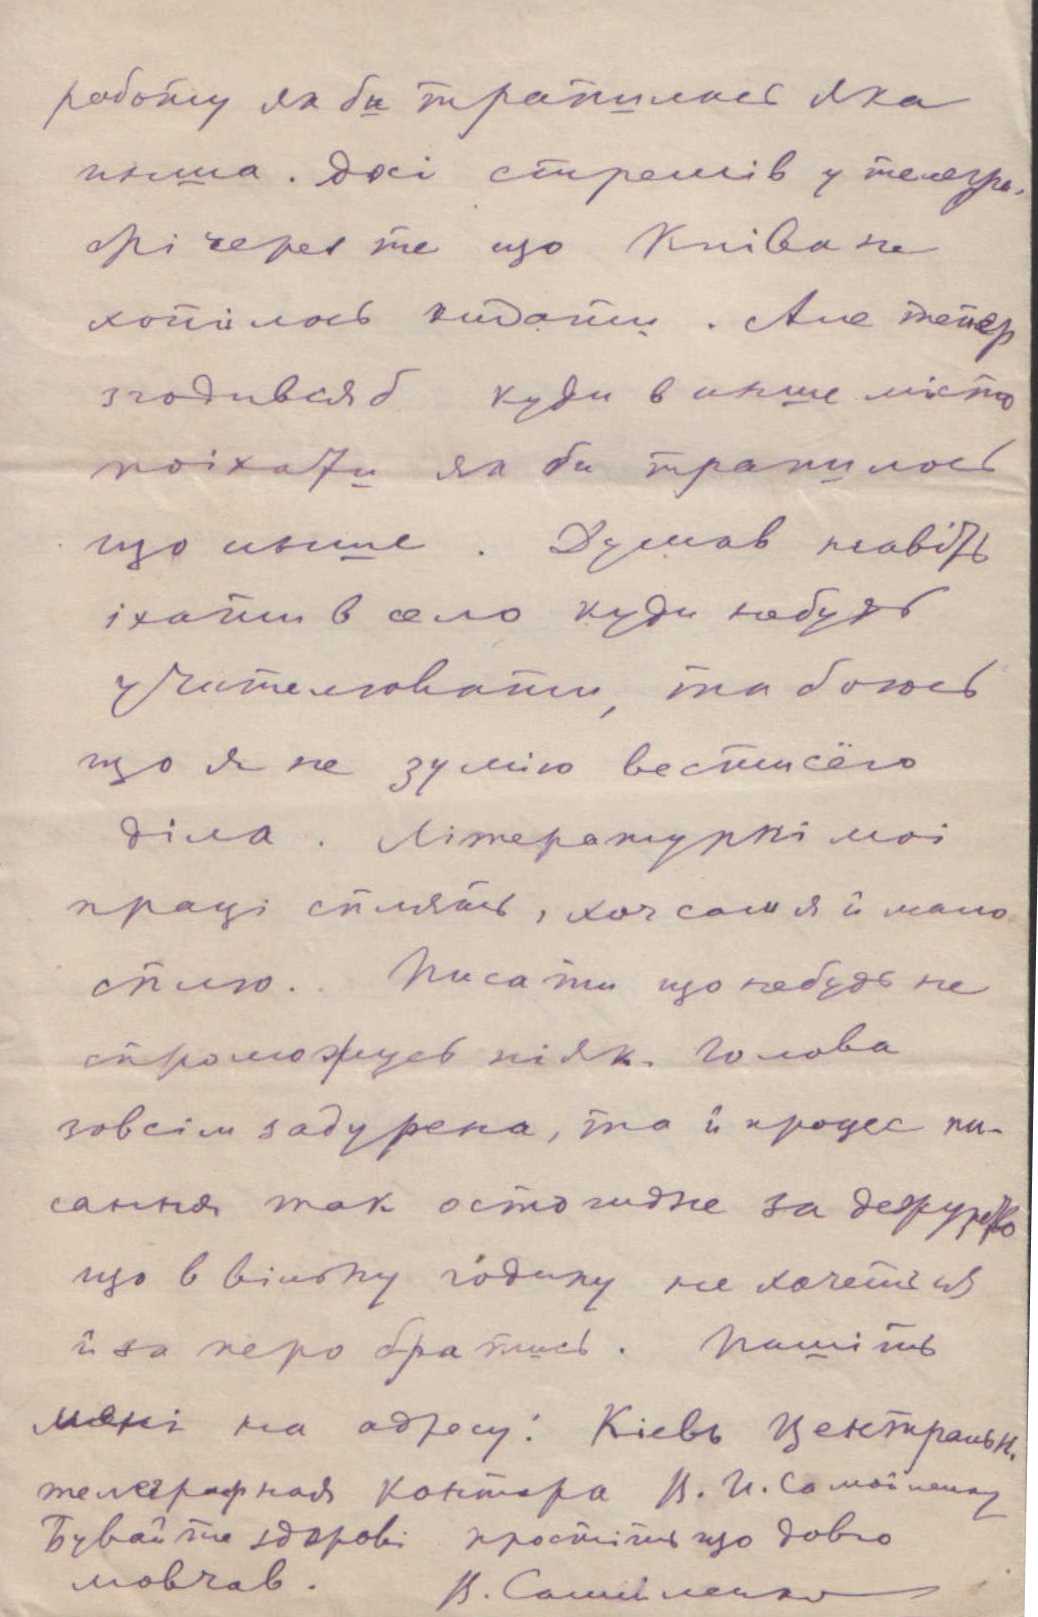 роботу як би трапилась яка
инша. Досі стремів у телегра-
фі через те що Київа не
хотілось кидати. Але тепер
згодився б куди в инше місто
поіхати як би трапилось
що инше. Думав навіть
іхати в село куди небудь
учителювати, та боюсь
що я не зумію вести сёго
діла. Літературні моі
праці сплять, хоч сам я й мало
сплю.. Писати що небудь не
спроможусь ніяк. Голова
зовсім задурена, та й процес пи-
сання так остогидне за
що в вільну годину не хочеться
й за перо братись. Пишіть
мені на адресу: Кіевъ Центральн.
телеграфная контора В. И. Самойленку
Бувайте здорові простіть що довго
мовчав. В. Самійленко